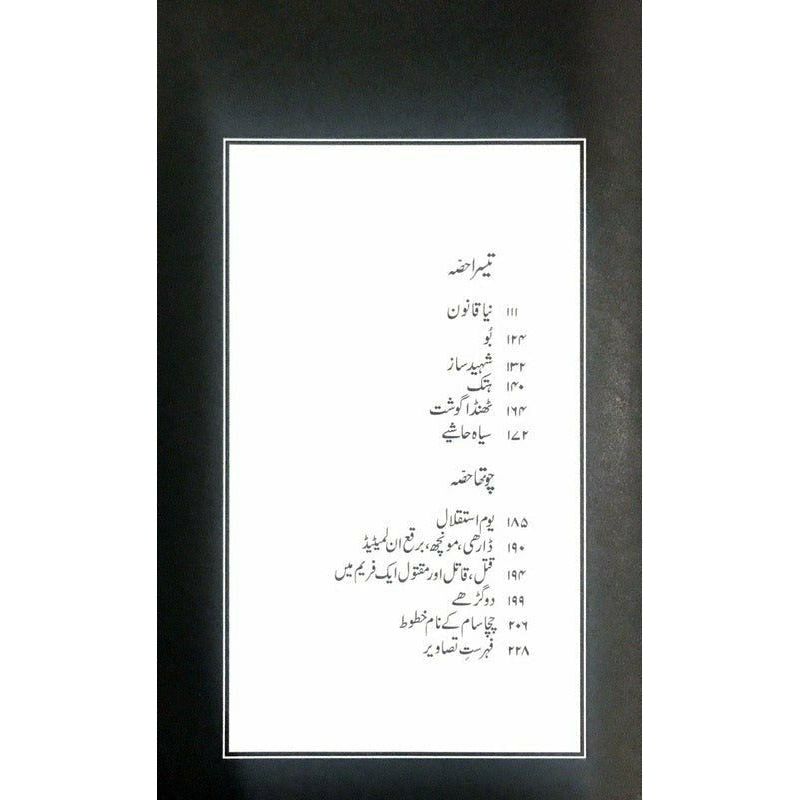 تیسرا حصّہ
۱۱۱ نیا قانون
۱۲۴ بُو
۱۳۲ شہید ساز
۱۴۰ ہتک
۱۶۴ ٹھنڈا گوشت
۱۷۲ سیاہ حاشیے
چوتھا حصّہ
۱۸۵ یوم استقلال
۱۹۰ ڈارھی، مونچھ، برقع ان لمیٹیڈ
۱۹۴ قتل، قاتل اور مقتول ایک فریم میں
۱۹۹ دو گڑھے
۲۰۶ چچا سام کے نام خطوط
۲۲۸ فہرستِ تصاویر